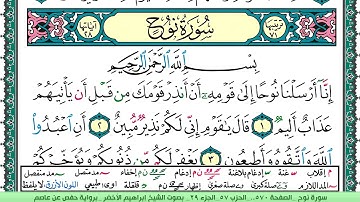 سُورَةُ نُوحٍ
بِسْمِ اللَّهِ الرَّحْمَٰنِ الرَّحِيمِ
إِنَّا أَرْسَلْنَا نُوحًا إِلَىٰ قَوْمِهِ أَنْ أَنْذِرْ قَوْمَكَ مِن قَبْلِ أَن يَأْتِيَهُمْ
عَذَابٌ أَلِيمٌ ١ قَالَ يَا قَوْمِ إِنِّي لَكُمْ نَذِيرٌ مُّبِينٌ ٢ أَنِ اعْبُدُوا
اللَّهَ وَاتَّقُوهُ وَأَطِيعُونِ ٣ يَغْفِرْ لَكُم مِّن ذُنُوبِكُمْ وَيُؤَخِّرْكُمْ
سورة نوح .. الصفحة ٥٧٠.. الحزب ٥٧ الجزء ٢٩ .. بصوت الشيخ ابراهيم الأخضر .. برواية حفص عن عاصم